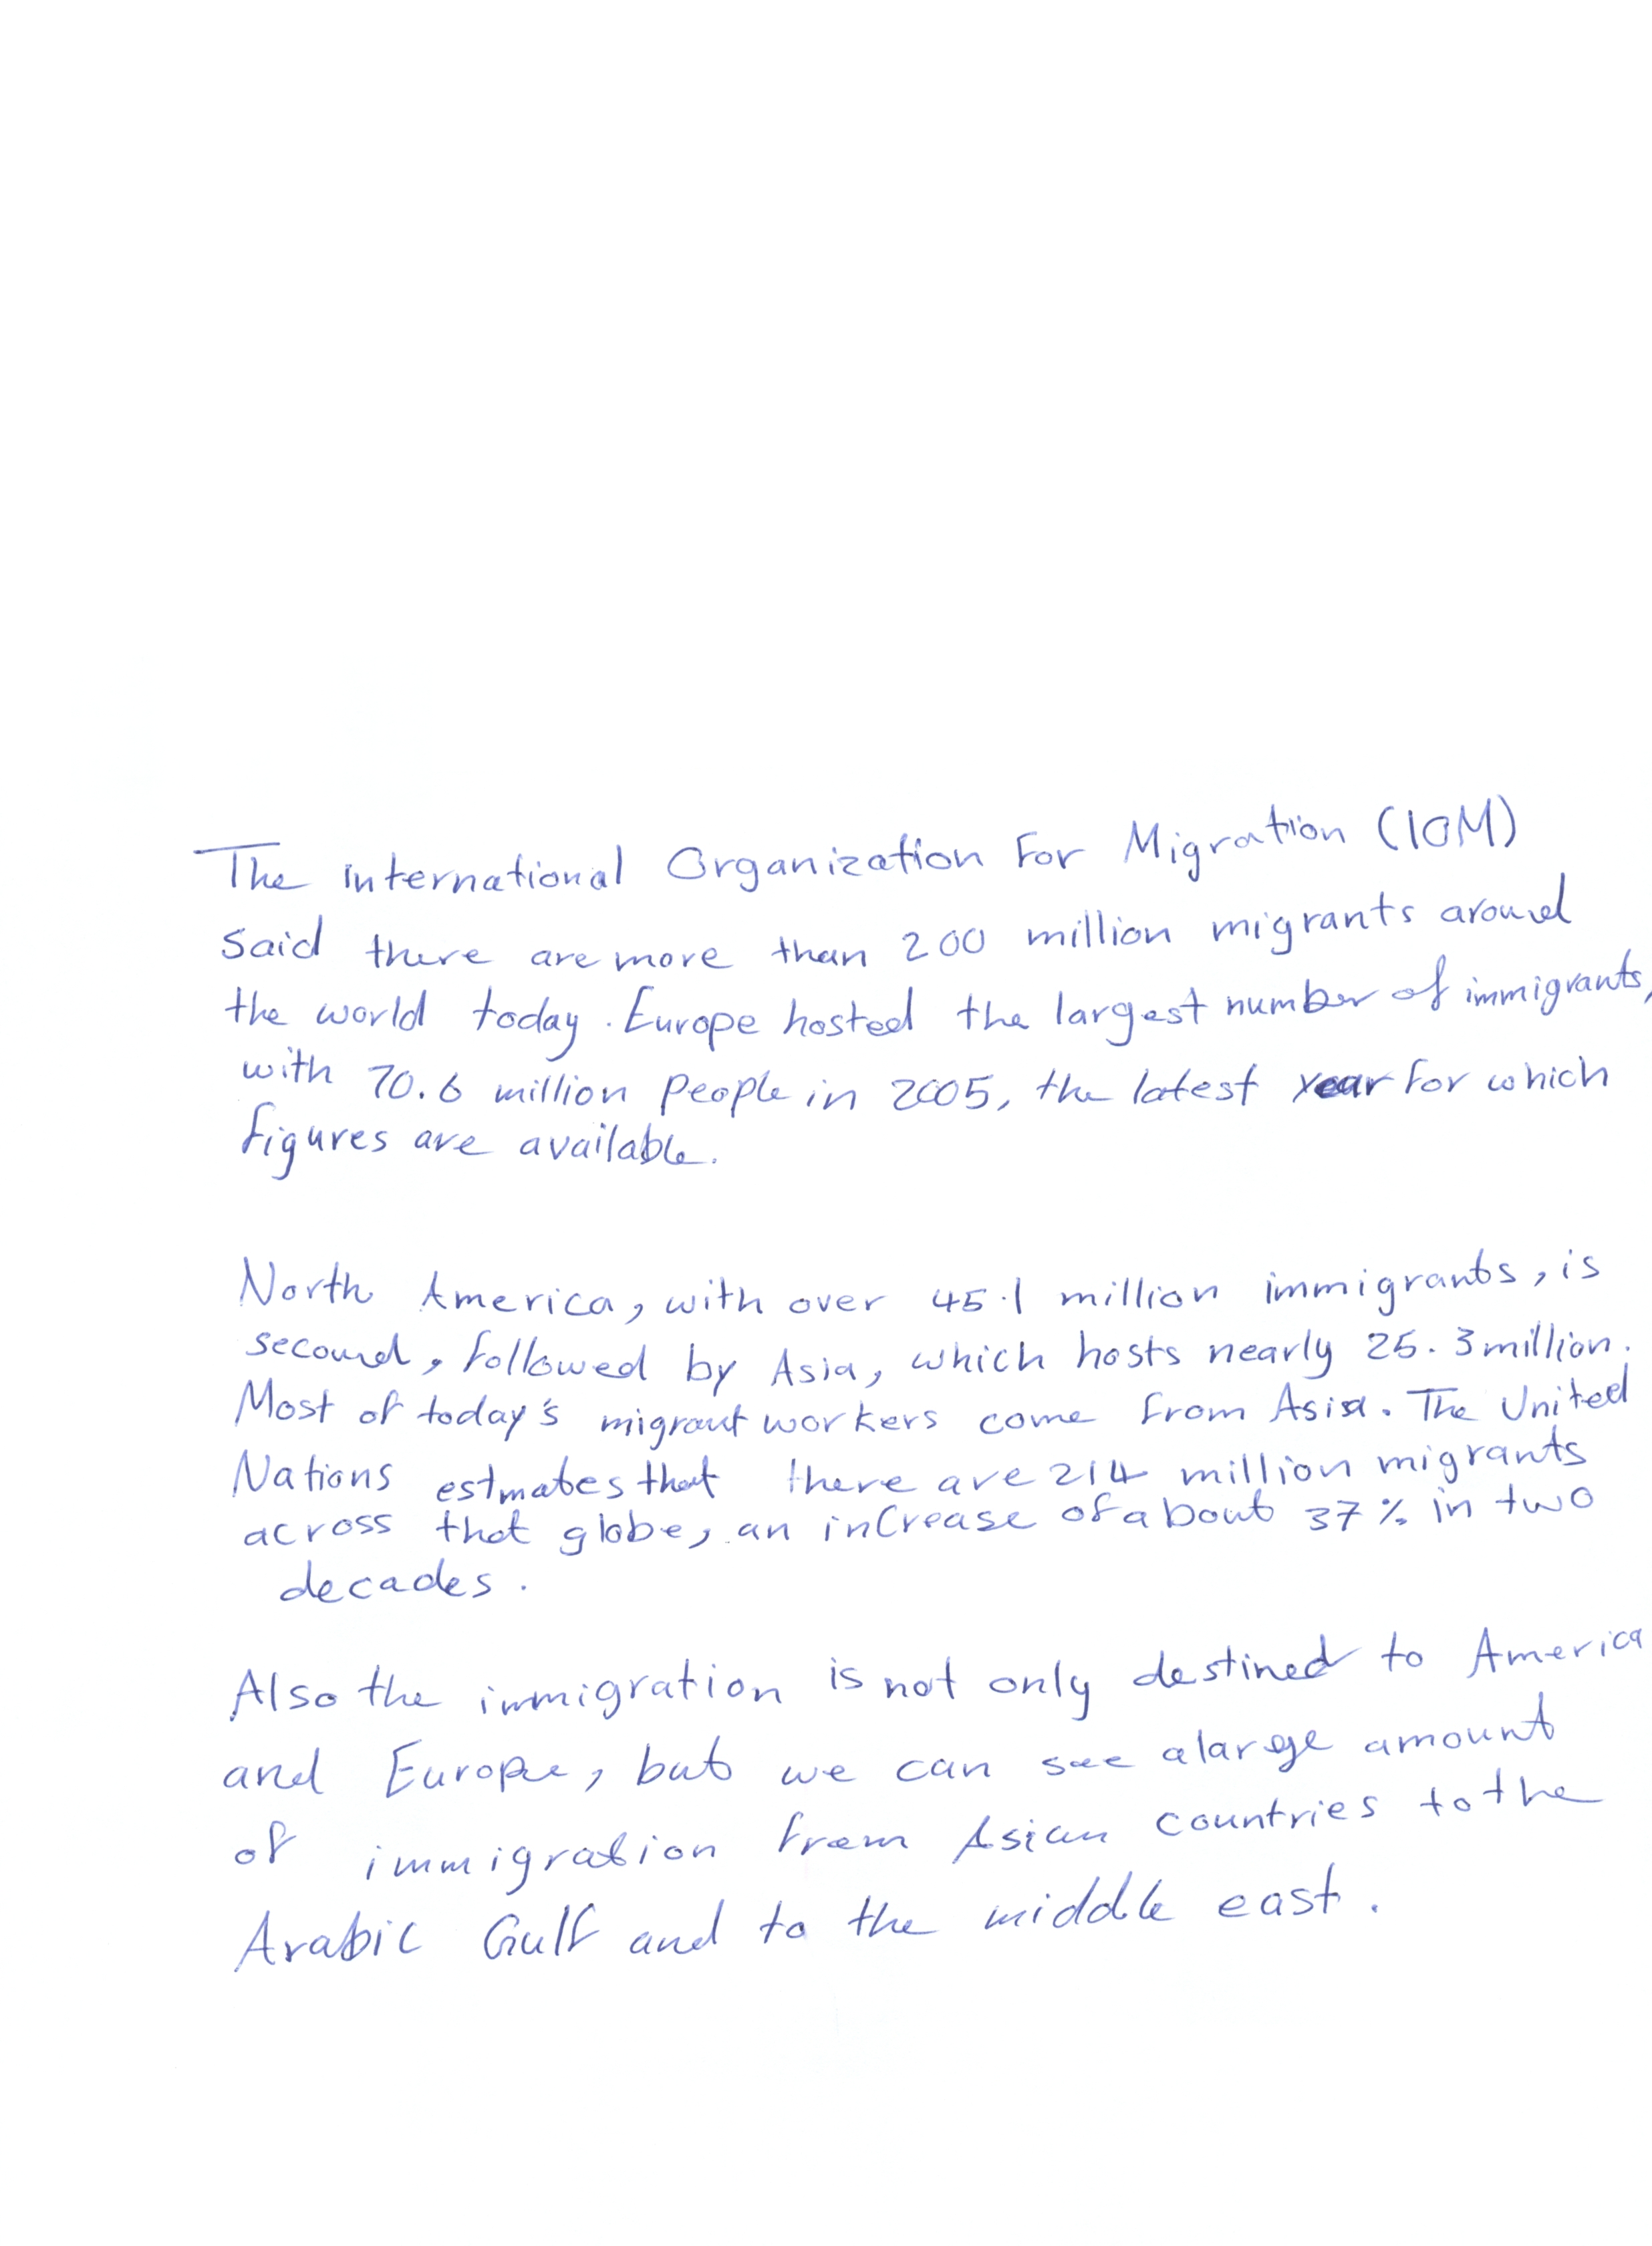 The international Organization For Migration (IOM)
said there are more than 200 million migrants around
the world today. Europe hosted the largest number of immigrants,
with 70.6 million people in 2005, the latest year for which
figures are available.
North America, with over 45.1 million immigrants, is
second, followed by Asia, which hosts nearly 25.3 million.
Most of today's migrant workers come from Asia. The United
Nations estmates that there are 214 million migrants
across that globe, an increase of about 37% in two
decades.
Also the immigration is not only destined to America
and Europe, but we can see a large amount
of immigration from Asian countries to the
Arabic Gulf and to the middle east.